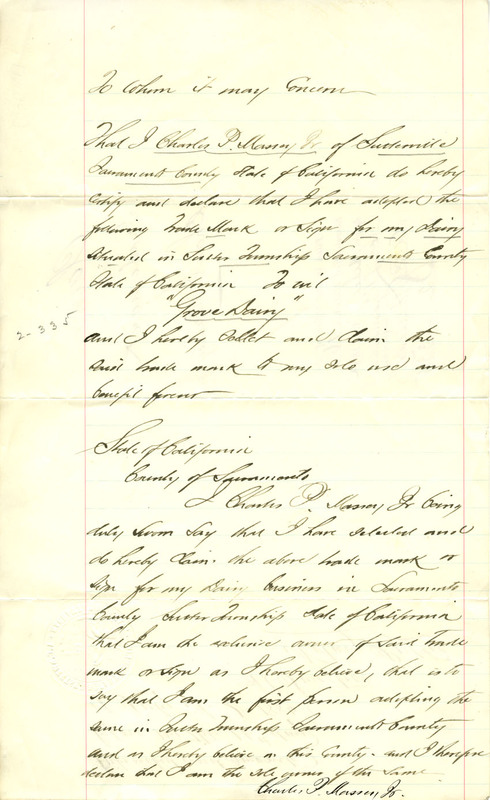 To Whom it may Concern
That I Charles P. Massey Jr of Sutterville
Sacramento County State of California do hereby
certify and declare that I have adopted the
following Trade Mark or Sign for my Dairy
situated in Sutter Township Sacramento County
State of California To wit
"Grove Dairy"
2-335
and I hereby and claim the
said trade mark to my sole use and
benefit
State of California
County of Sacramento
I Charles P. Massey Jr being
duly sworn say that I have selected and
do hereby claim the above trade mark or
sign for my Dairy business in Sacramento
County Sutter Township State of California
that I am the exclusive owner of said trade
mark or sign as I hereby believe, that is to
say that I am the first person adopting the
same in Sutter Township Sacramento County
and as I hereby believe in this County - and I therefore
declare that I am the sole owner of the same
Charles P. Massey Jr.